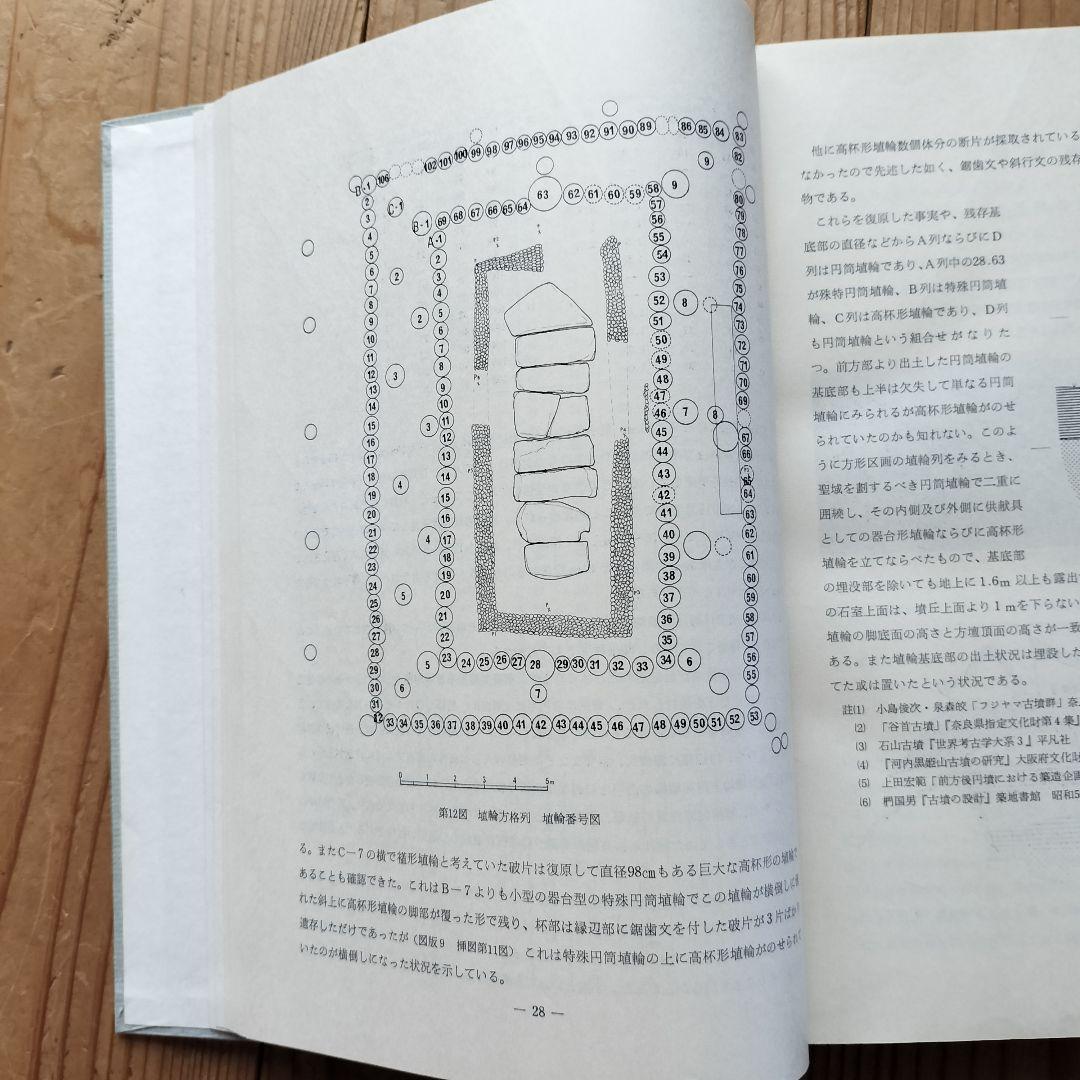 D-1 106 102 101 100 99 98 97 96 95 94 93 92 91 90 89 86 85 84 83
2 C-1 9 82
3 B-1 69 68 67 66 65 64 63 62 61 60 59 58 9 80
4 A-1 57 79
5 2 56 78
6 2 3 55 77
7 4 54 76
8 2 5 53 75
9 6 52 8 74
10 7 51 73
11 8 50 72
12 3 9 49 71
13 10 48 70
14 3 11 47 69
15 12 46 7 8
16 13 45 67
17 14 44 66
18 4 15 43 65
19 16 42 64
20 4 17 41 63
21 18 40 62
22 19 39 61
23 20 38 60
24 5 21 37 59
25 22 36 58
26 35 57
27 5 23 24 25 26 27 28 29 30 31 32 33 34 6 56
28 55
29 6 7
30
31
32 33 34 35 36 37 38 39 40 41 42 43 44 45 46 47 48 49 50 51 52 53
0 1 2 3 4 5m
第12図 埴輪方格列 埴輪番号図
る。またC−7の横で𥶡形埴輪と考えていた破片は復原して直径98cmもある巨大な高杯形の埴輪で
あることも確認できた。これはB−7よりも小型の器台型の特殊円筒埴輪でこの埴輪が横倒しに
れた斜上に高杯形埴輪の脚部が覆った形で残り、杯部は縁辺部に鋸歯文を付した破片が3片ばかり
遺存しただけであったが(図版9 挿図第11図) これは特殊円筒埴輪の上に高杯形埴輪がのせられて
いたのが横倒しになった状況を示している。
— 28 —
他に高杯形埴輪数個体分の断片が採取されている
なかったので先述した如く、鋸歯文や斜行文の残存
物である。
これらを復原した事実や、残存基
底部の直径などからA列ならびにD
列は円筒埴輪であり、A列中の28.63
が殊特円筒埴輪、B列は特殊円筒埴
輪、C列は高杯形埴輪であり、D列
も円筒埴輪という組合せがなりた
つ。前方部より出土した円筒埴輪の
基底部も上半は欠失して単なる円筒
埴輪にみられるが高杯形埴輪がのせ
られていたのかも知れない。このよ
うに方形区画の埴輪列をみるとき、
聖域を劃するべき円筒埴輪で二重に
囲繞し、その内側及び外側に供献具
としての器台形埴輪ならびに高杯形
埴輪を立てならべたもので、基底部
の埋没部を除いても地上に1.6m以上も露出
の石室上面は、墳丘上面より1mを下らない
埴輪の脚底面の高さと方壇頂面の高さが一致
ある。また埴輪基底部の出土状況は埋設した
てた或は置いたという状況である。
註(1) 小島俊次・泉森皎「フジヤマ古墳群」奈
(2) 「谷首古墳」『奈良県指定文化財第4集』
(3) 石山古墳『世界考古学大系3』平凡社
(4) 『河内黒姫山古墳の研究』大阪府文化財
(5) 上田宏範「前方後円墳における築造企画
(6) 椚国男『古墳の設計』築地書館 昭和5